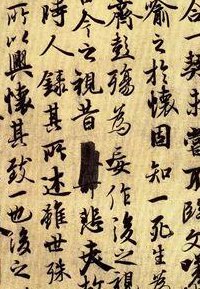 合一契未嘗不臨文嗟
喻之於懷固知一死生為
齊彭殤為妄作後之視
由今之視昔悲夫故
時人錄其所述雖世殊
所以興懷其致一也後之